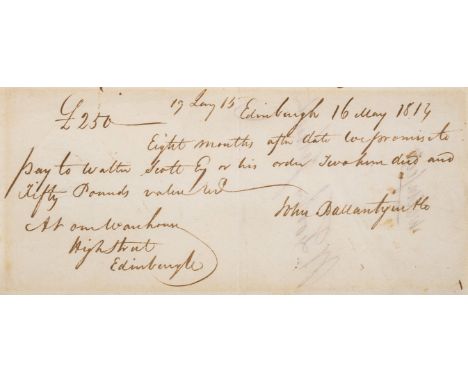 £250 19 Jany 15 Edinburgh 16 May 1814
Eight months after date we promise to
pay to Walter Scott Esq or his order Two hundred and
Fifty Pounds value recd
John Ballantyne & Co
At our Warehouse
High Street
Edinburgh